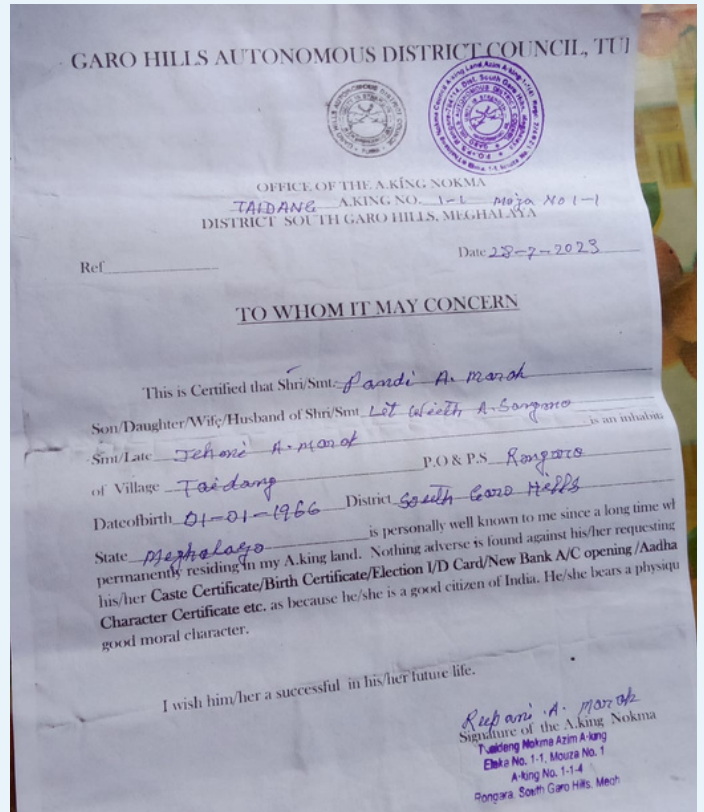 GARO HILLS AUTONOMOUS DISTRICT COUNCIL, TU
OFFICE OF THE A.KING NOKMA
TAIDANG A.KING NO. 1-1 Moza No 1-1
DISTRICT SOUTH GARO HILLS, MEGHALAYA
Ref
Date 28-7-2023
TO WHOM IT MAY CONCERN
This is Certified that Shri/Smt. Pandi A. Marak
Son/Daughter/Wife/Husband of Shri/Smt Let A. Sangma
Smt/Late Jehoni A. Marak is an inhabita
of Village Taidang P.O & P.S Rongara
Dateofbirth 01-01-1966 District South Garo Hills
State Meghalaya is personally well known to me since a long time wh
permanently residing in my A.king land. Nothing adverse is found against his/her requesting
his/her Caste Certificate/Birth Certificate/Election I/D Card/New Bank A/C opening /Aadha
Character Certificate etc. as because he/she is a good citizen of India. He/she bears a physiqu
good moral character.
I wish him/her a successful in his/her future life.
A. Marak
Signature of the A.king Nokma
Nokma Azim A-king
Elaka No. 1-1, Mouza No. 1
A-king No. 1-1-4
Rongara, South Garo Hills, Megh